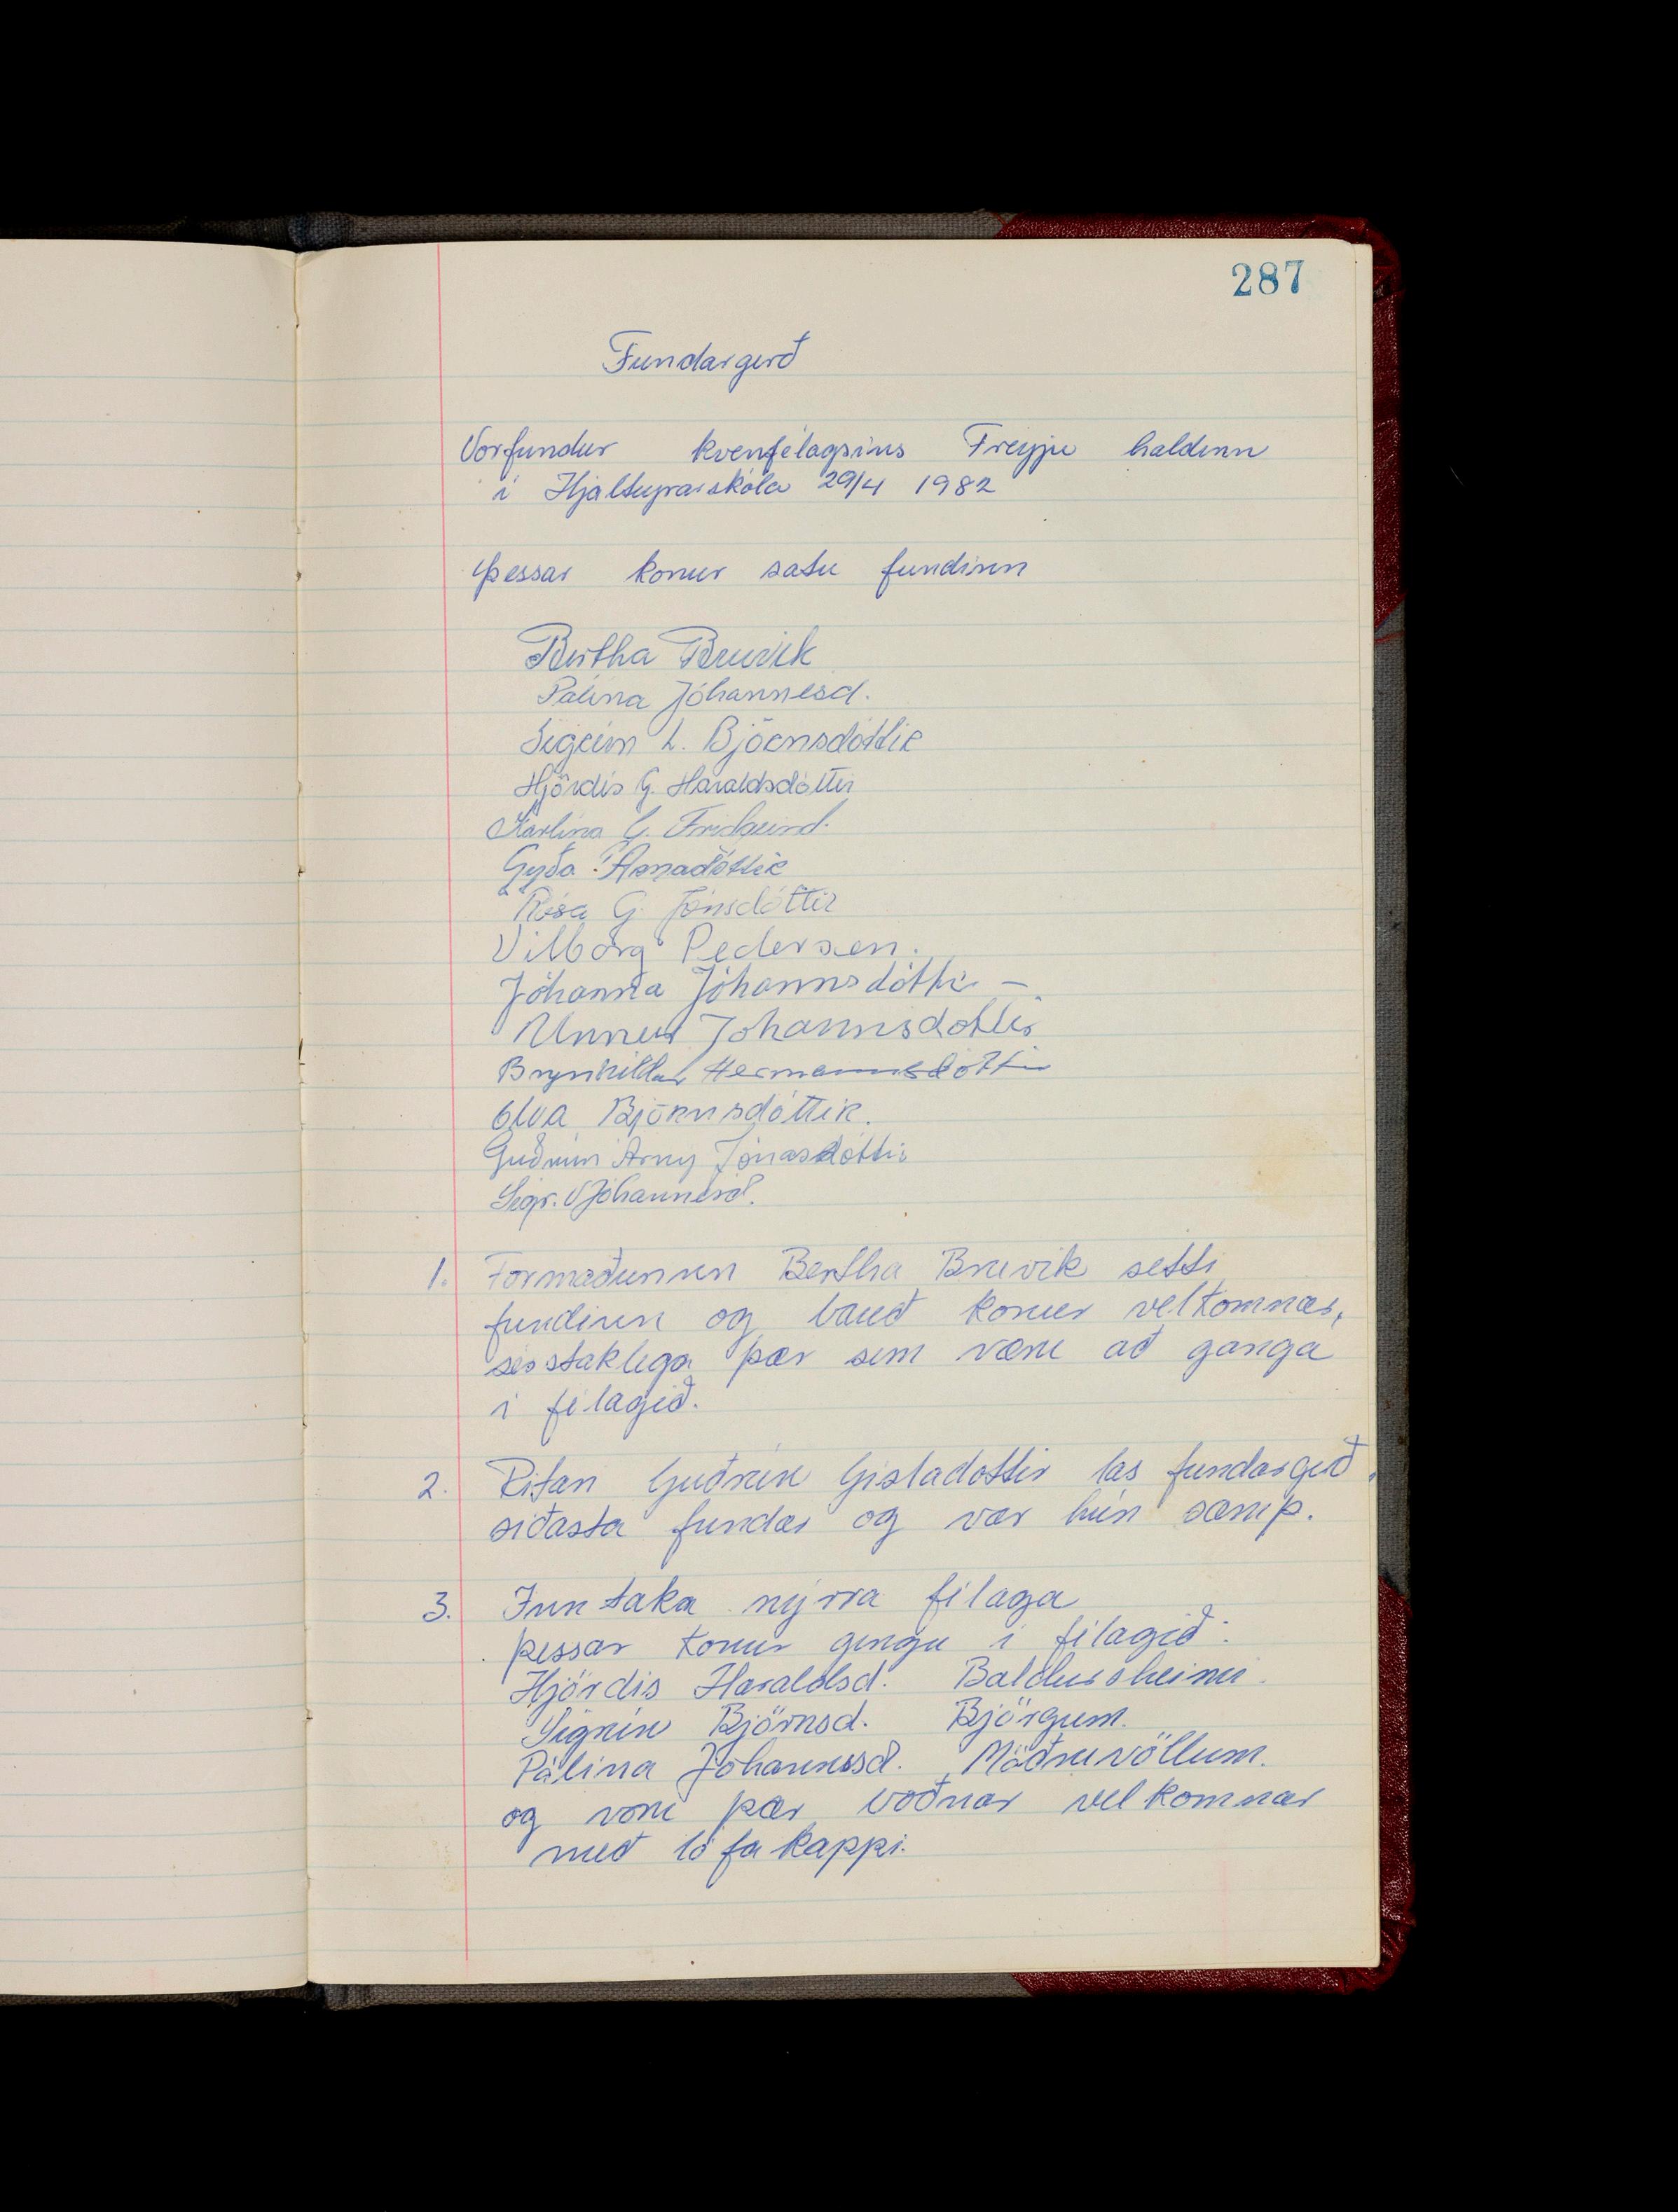 287
Fundargerð
Vorfundur kvenfélagsins Freyju haldinn
í Hjalteyrarskóla 29/4 1982
Þessar konur satu fundinn
Bertha Bruvik
Pálína Jóhannesd.
Sigrún L. Björnsdóttir
Hjördís G. Haraldsdóttir
Karlína G. Friðbjörnd.
Gyða Árnadóttir
Rósa G. Jónsdóttir
Vilborg Pedersen.
Jóhanna Jóhannsdóttir –
Unnur Jóhannsdottir
Brynhildur Hermannsdóttir
Ólöva Björnsdóttir.
Guðrún Arný Jónasdóttir
Sigr. Jóhannesd.
1. Formaðurinn Bertha Bruvik setti
fundinn og bauð konur velkomnar,
sérstaklega þær sem væru að ganga
í félagið.
2. Ritari Guðrún Gísladottir las fundargerð
síðasta fundar og var hún samþ.
3. Inntaka nýrra félaga
þessar konur gengu í félagið:
Hjördís Haraldsd. Baldursheimi.
Sigrún Björnsd. Björgum.
Pálína Jóhannesd. Möðruvöllum.
og voru þær boðnar velkomnar
með lófa kappi.